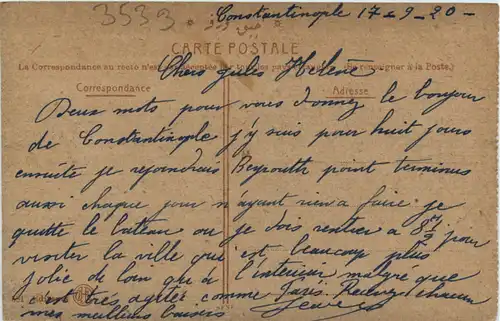 3533
Constantinople 17-9-20-
CARTE POSTALE
La Correspondance au recto n'est pas acceptée par tous les pays (Se renseigner à la Poste.)
Chers Jules Hélène
Correspondance
Adresse
Deux mots pour vous donner le bonjour
de Constantinople j'y suis pour huit jours
ensuite je rejoindrais Beyrouth point terminus
aussi chaque jour n'ayant rien a faire je
quitte le bateau ou je dois rentrer a 8h 1/2 pour
visiter la ville que est beaucoup plus
jolie de loin qu'à l'intérieur malgré que
c'est très agitée comme Paris. Recevez chacun
mes meilleurs baisers